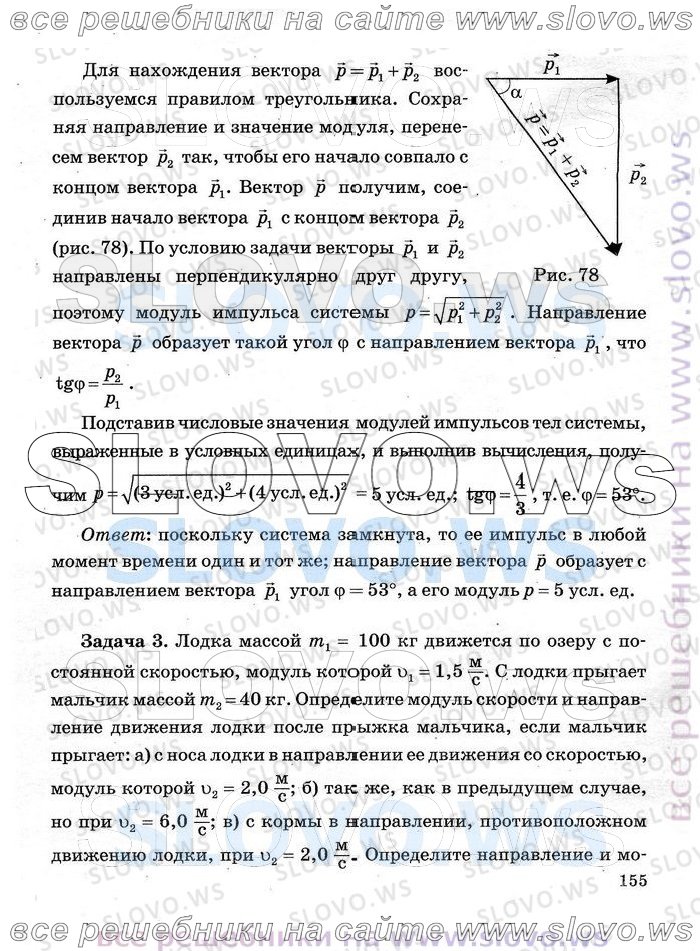 все решебники на сайте www.slovo.ws
Для нахождения вектора p⃗ = p⃗₁ + p⃗₂ вос-
пользуемся правилом треугольника. Сохра-
няя направление и значение модуля, перене-
сем вектор p⃗₂ так, чтобы его начало совпало с
концом вектора p⃗₁. Вектор p⃗ получим, сое-
динив начало вектора p⃗₁ с концом вектора p⃗₂
(рис. 78). По условию задачи векторы p⃗₁ и p⃗₂
направлены перпендикулярно друг другу,
p⃗₁
α
p⃗ = p⃗₁ + p⃗₂
p⃗₂
Рис. 78
поэтому модуль импульса системы p = √(p₁² + p₂²). Направление
вектора p⃗ образует такой угол φ с направлением вектора p⃗₁, что
tgφ = p₂/p₁.
Подставив числовые значения модулей импульсов тел системы,
выраженные в условных единицах, и выполнив вычисления, полу-
чим p = √((3 усл. ед.)² + (4 усл. ед.)²) = 5 усл. ед.; tgφ = 4/3, т. е. φ = 53°.
Ответ: поскольку система замкнута, то ее импульс в любой
момент времени один и тот же; направление вектора p⃗ образует с
направлением вектора p⃗₁ угол φ = 53°, а его модуль p = 5 усл. ед.
Задача 3. Лодка массой m₁ = 100 кг движется по озеру с по-
стоянной скоростью, модуль которой υ₁ = 1,5 м/с. С лодки прыгает
мальчик массой m₂ = 40 кг. Определите модуль скорости и направ-
ление движения лодки после прыжка мальчика, если мальчик
прыгает: а) с носа лодки в направлении ее движения со скоростью,
модуль которой υ₂ = 2,0 м/с; б) так же, как в предыдущем случае,
но при υ₂ = 6,0 м/с; в) с кормы в направлении, противоположном
движению лодки, при υ₂ = 2,0 м/с. Определите направление и мо-
155
все решебники на сайте www.slovo.ws
все решебники на www.slovo.ws
все решебники на www.slovo.ws
SLOVO.WS
SLOVO.WS
SLOVO.WS
SLOVO.WS
SLOVO.WS
SLOVO.WS